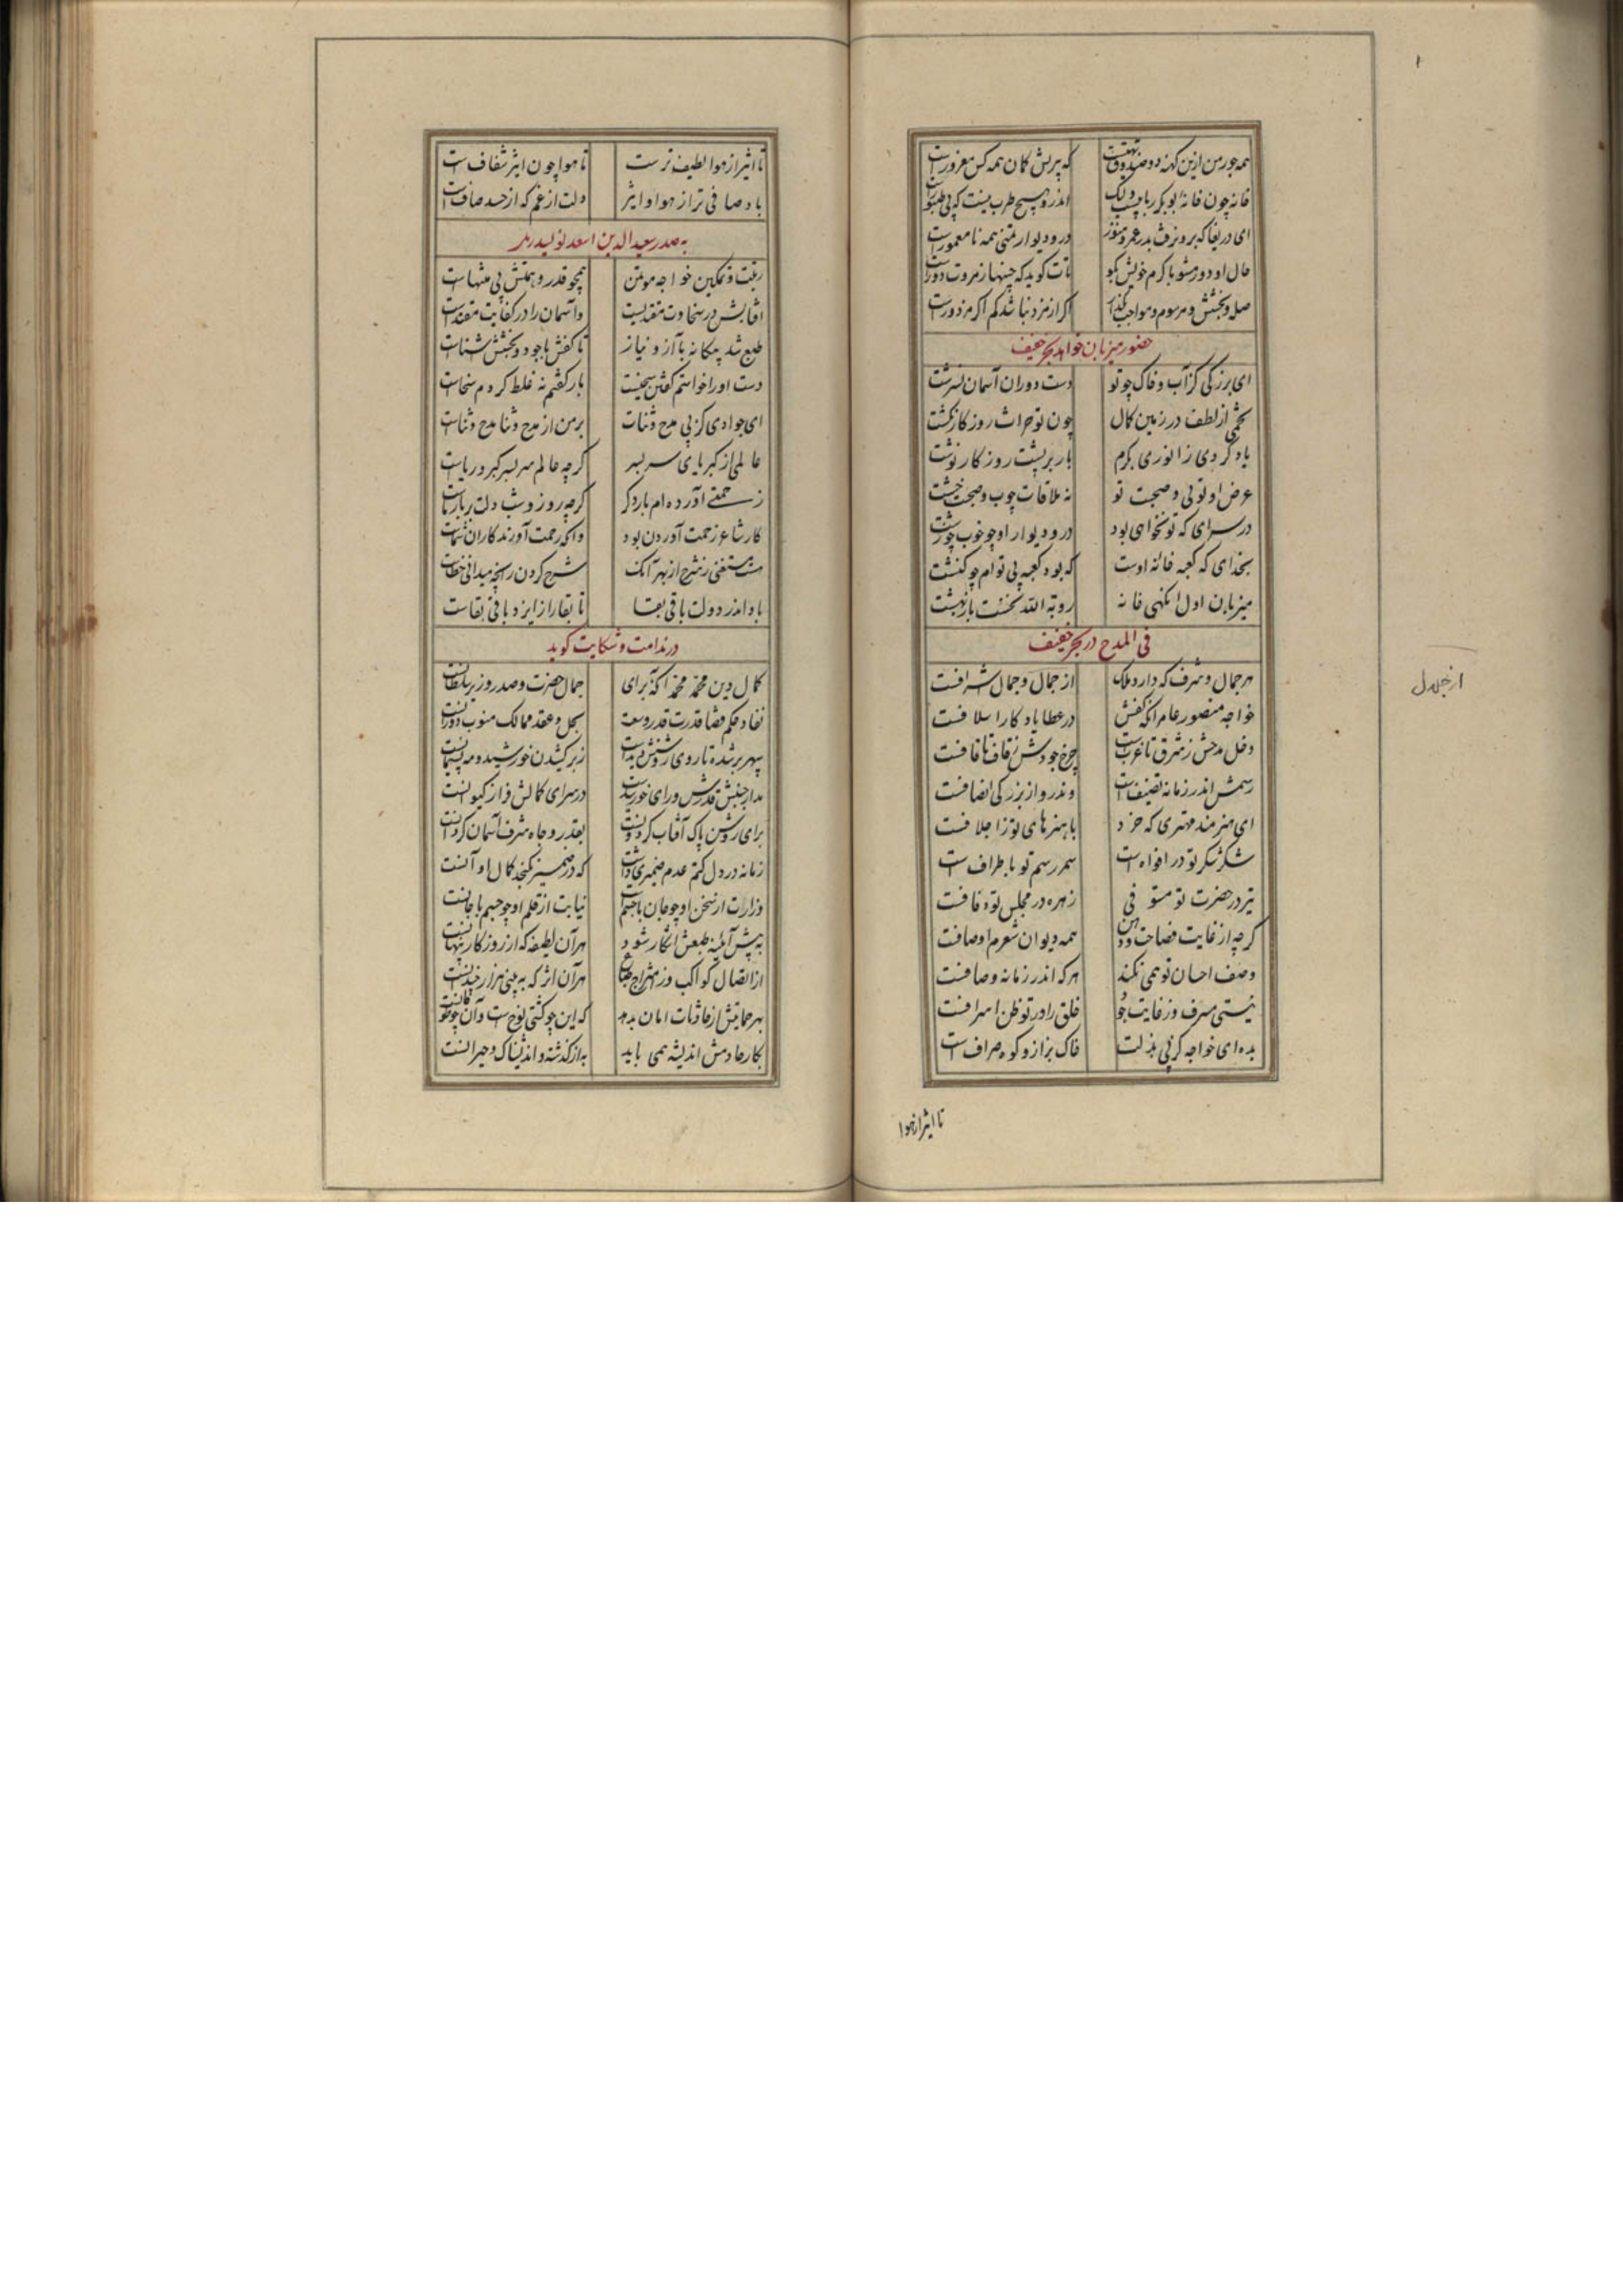 همه جور من ازین کهنه دو صندوق تهیست که پرش کان همه کس مغرورست
خانه چون خانه بوبکر ربابیست ولیک اندرو هیچ طرب نیست که بی طنبورست
ای دریغا که برون رفت بدر عمر و هنوز در و دیوار تمنی همه نامعمورست
حال او دور مشو با کرم خویش بگو تات گوید که چنینها ز مروت دورست
صله و بخشش و مرسوم و مواجب بگذار اگر از مزد نباشد کم اگر مزدورست
حضور میزبان خواهد بحر خفیف
ای بزرگی کز آب و خاک چو تو دست دوران آسمان نسرشت
تخمی از لطف در زمین کمال چون تو حراث روزگار نکشت
یاد کردی ز انوری بکرم بار بر پشت روزگار نوشت
غرض او توئی و صحبت تو نه ملاقات چوب و صحبت خشت
در سرای که تو نخواهی بود در و دیوار او چه خوب و چه زشت
بخدای که کعبه خانه اوست که بود کعبه بی توام چو کنشت
میزبان اول آنگهی خانه رویة الله نخست باز بهشت
فی المدح در بحر خفیف
هر جمال و شرف که دارد ملک از جمال و جمال اشرافست
خواجه منصور عامر آنکه کفش در عطا یادگار اسلافست
دخل مدحش ز شرق تا غربست چرخ جودش ز قاف تا قافست
رسمش اندر زمانه تصنیفست وندرو از بزرگی انصافست
ای هنرمند مهتری که خرد با هنرهای تو ز اجلافست
شکر شکر تو در افواه است سمر رسم تو باطراف است
تیر در حضرت تو مستوفی زهره در مجلس تو دفافست
گرچه از غایت فصاحت وذهن همه دیوان شعرم اوصافست
وصف احسان تو همی نکند هر که اندر زمانه وصافست
نیستی مسرف وز غایت جود خلق را در تو ظن اسرافست
بده ای خواجه کز پی بذلت خاک بزاز و کوه صراف است
تا اثیر از هوا
از خجدل
تا اثیر از هوا لطیف ترست تا هوا چون اثیر شفاف است
باد صافی تر از هوا و اثیر دلت از غم که از حسد صافست
به صدر سعید الدین اسعد نویسد
رتبت و تمکین خواجه موتمن همچو قدر و همتش بی منتهاست
آفتابش در سخاوت مقتدیست و آسمان را در کفایت مقتداست
طبع شد بیگانه با آز و نیاز تا کفش با جود و بخشش آشناست
دست او را خواستم گفتن سخیست باز گفتم نه غلط کردم سخاست
ای جوادی کز پی مدح و ثنات بر من از مدح و ثنا مدح و ثناست
عالمی از کبریای سربسر گرچه عالم سربسر کبر و ریاست
زحمتی آورده ام بار دگر گرچه روز و شب دلت زیر بارهاست
کار شاعر زحمت آوردن بود وانکه رحمت آورد کار آن شماست
هست مستغنی ز شرح از بهر آنک شرح کردن زانچه میدانی خطاست
باد اندر دولت باقی بقا تا بقا را از ایزد باقی بقاست
در ندامت و شکایت گوید
کمال دین محمد محمد آنکه برای جمال حضرت و صدر و وزیر سلطانست
نفاذ حکم قضا قدرت قدر وسعت بحل و عقد ممالک منوب دورانست
سپهر بر شده تا روی روشنش دیدست ز بر کشیدن خورشید و مه پشیمانست
مدار جنبش قدرش ورای خورشیدست در سرای کمالش فراز کیوانست
برای روشن پاک آفتاب گردونست بقدر و جاه و شرف آسمان گردانست
زمانه در دل کتم عدم ضمیری داشت که در ضمیر نگنجد کمال او آنست
وزارت از سخن او چو جان باجسم نیابت از قلم او چو جسم با جانست
به پیش آینه طبعش آشکار شود هر آن لطیفه که از روزگار پنهانست
از اتصال کواکب وز امتزاج طباع هر آن اثر که به بینی هزار چندانست
بهر حمایتش از حادثات امان بدهد که این چو کشتی نوحست و آن چو طوفانست
بکار حادمش اندیشه همی باید به از گذشته و اندیشناک و حیرانست